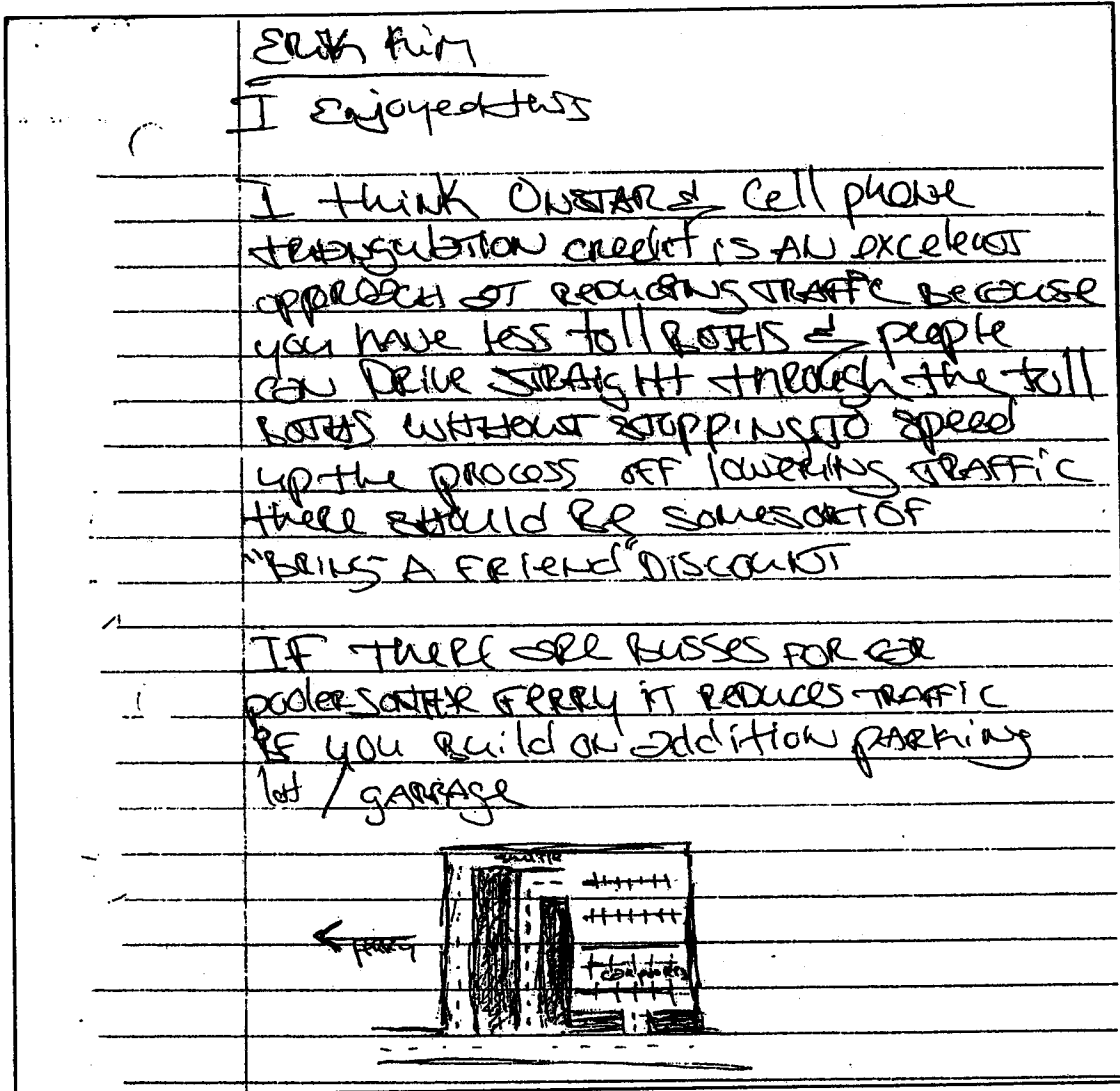 Erik Kim
I Enjoyed this
I think ONSTAR & Cell phone
triangulation credit is AN excelent
approach at REDUCING TRAFFIC BECAUSE
you have less toll BOTHS & people
can DRIVE STRAIGHT through the toll
BOTHS WITHOUT STOPPING TO speed
up the process OFF lowering TRAFFIC
there should BE some sort OF
"BRING A FRIEND" DISCOUNT
IF THERE are BUSSES FOR car
poolers on the FERRY it REDUCES TRAFFIC
IF you Build an addition PARKING
lot / GARBAGE
shuttle
ferry
carpoolers